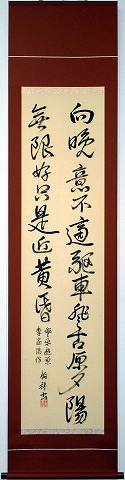 向晚意不適驅車登古原夕陽
無限好只是近黃昏
登樂遊原
李商隱作